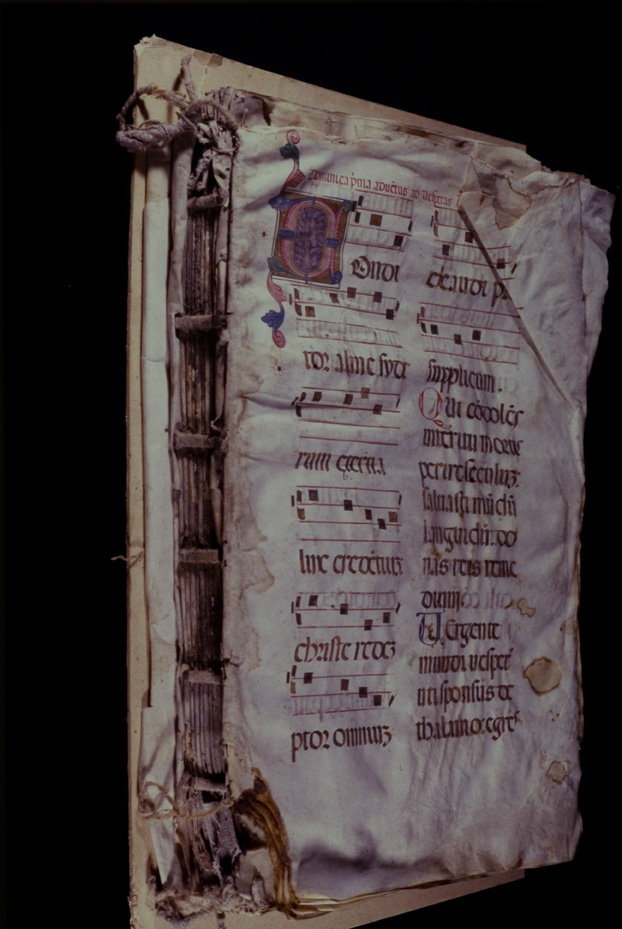 Dominica p̄ma aduētus ad uesperas
COndi
tor alme syde
rum eterna
lux credētiuʒ
christe redē
ptor omniuʒ
exaudi p
supplicum.
Qui cōdolēs
interitu morte
perire seculuʒ
saluasti mūdū
languidū: do
nas reis reme
dium
UErgente
mundi uespere
uti sponsus de
thalamo: egres